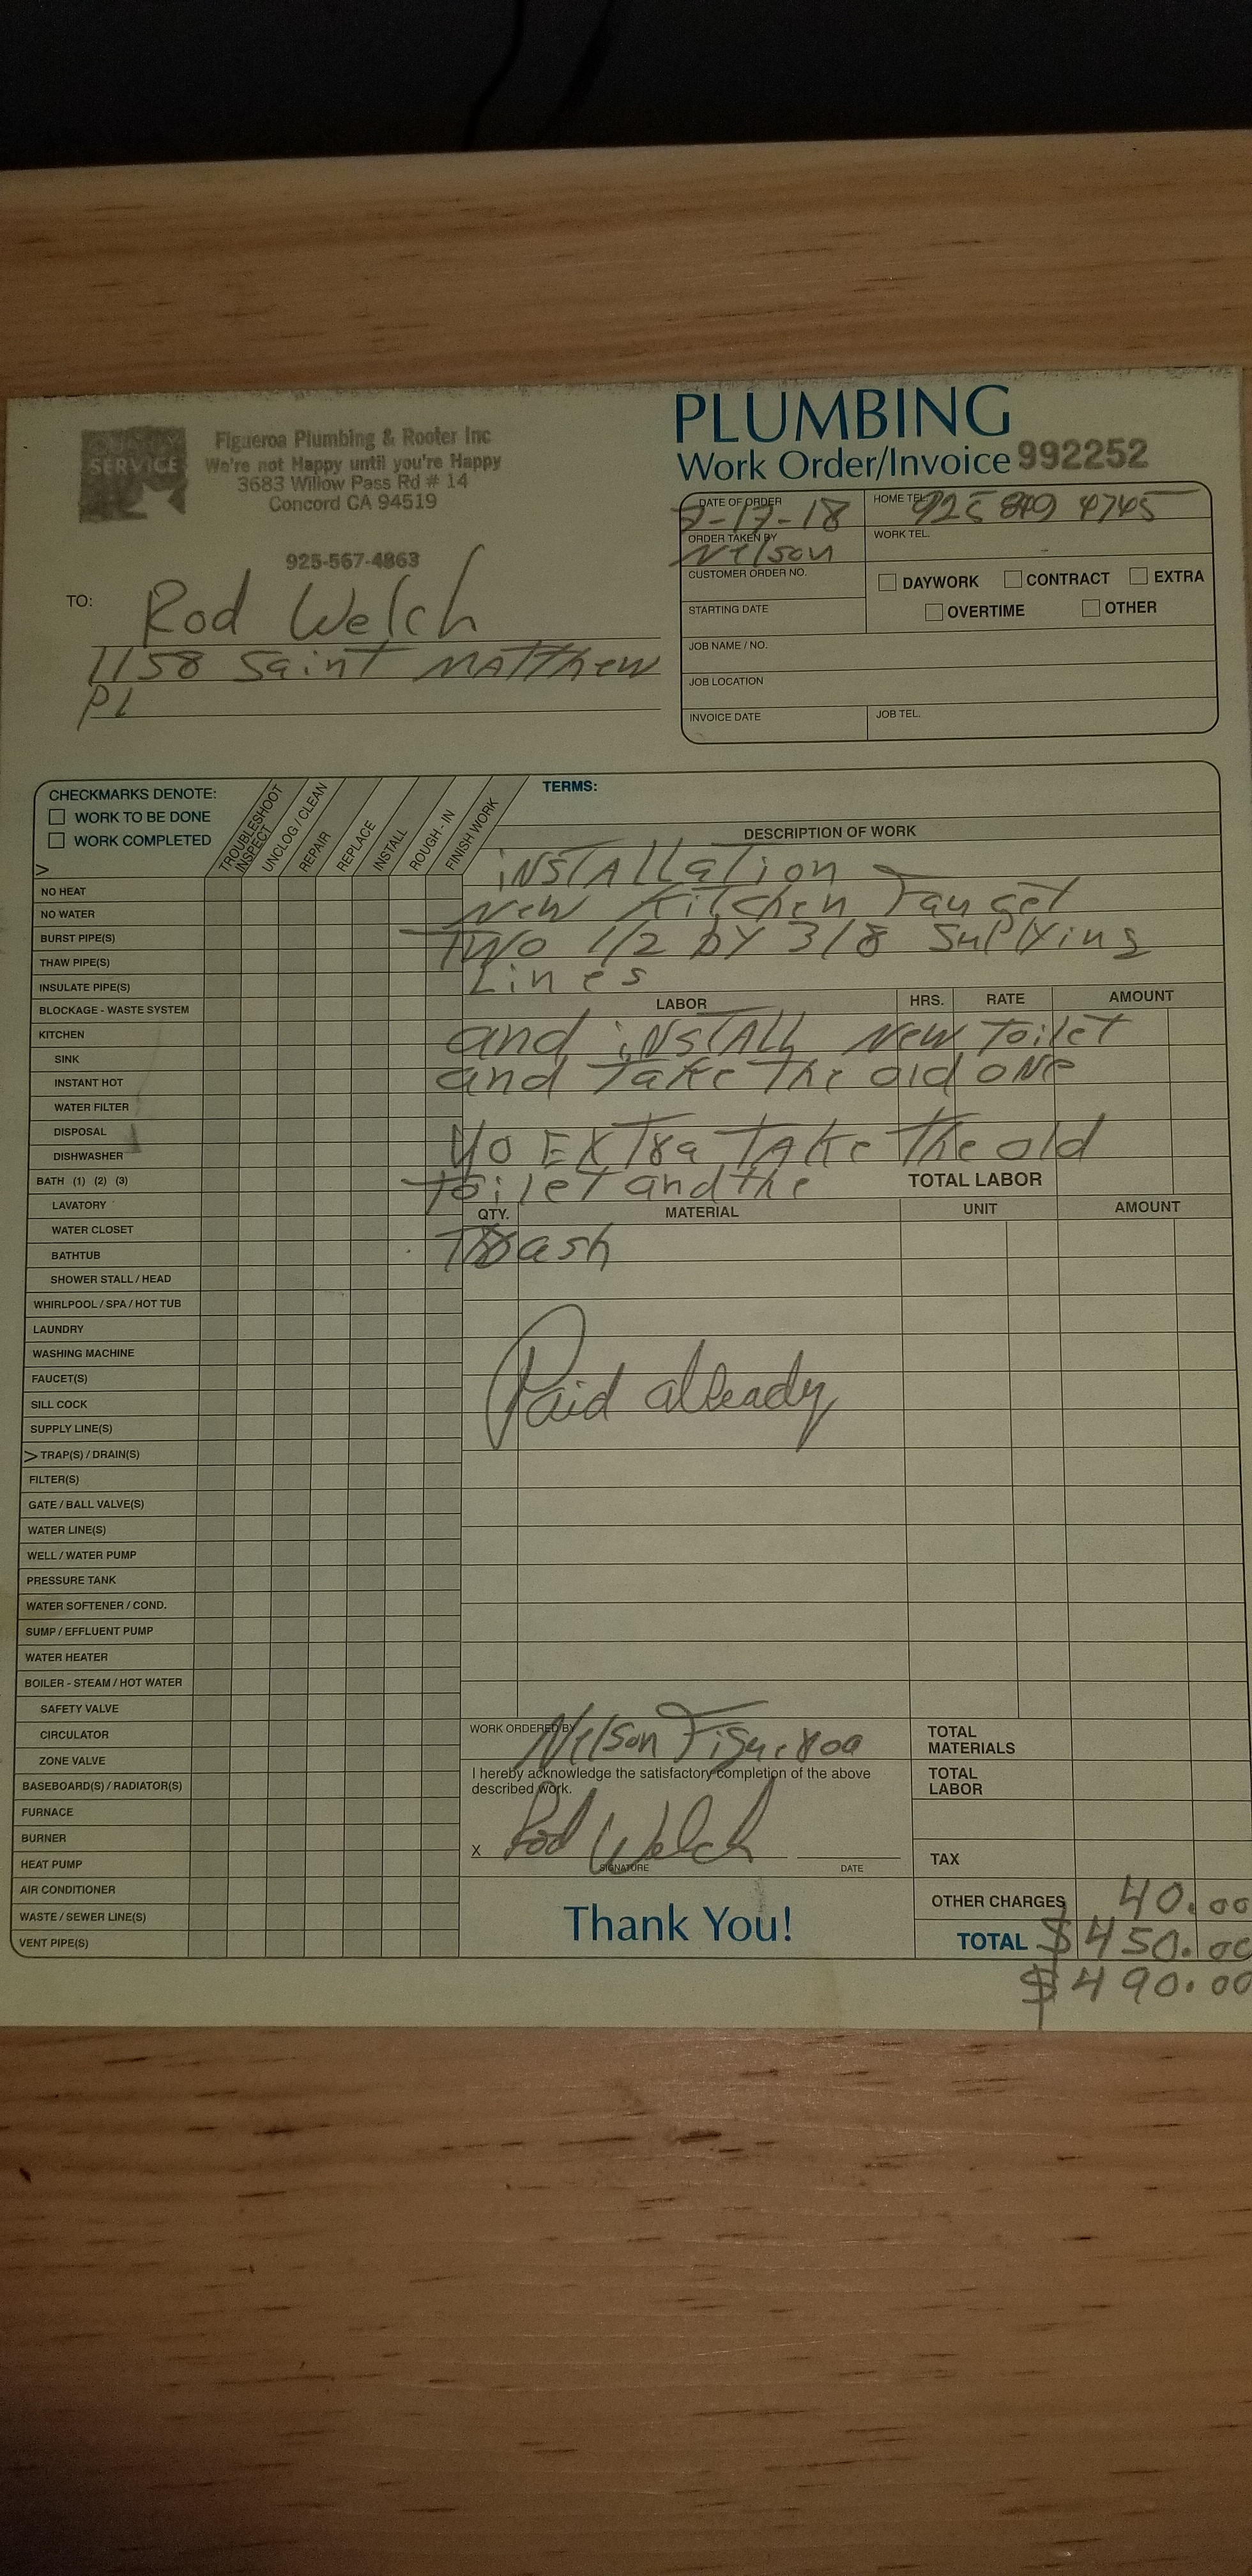 PLUMBING
Work Order/Invoice 992252
SERVICE
Figueroa Plumbing & Rooter Inc
We're not Happy until you're Happy
3683 Willow Pass Rd # 14
Concord CA 94519
925-567-4863
TO: Rod Welch
1158 Saint Matthew
Pl
DATE OF ORDER
-17-18
HOME TEL.
925 4745
ORDER TAKEN BY
Nelson
WORK TEL.
CUSTOMER ORDER NO.
DAYWORK CONTRACT EXTRA
STARTING DATE
OVERTIME OTHER
JOB NAME / NO.
JOB LOCATION
INVOICE DATE
JOB TEL.
CHECKMARKS DENOTE:
WORK TO BE DONE
WORK COMPLETED
TROUBLESHOOT
INSPECT
UNCLOG / CLEAN
REPAIR
REPLACE
INSTALL
ROUGH - IN
FINISH WORK
>
NO HEAT
NO WATER
BURST PIPE(S)
THAW PIPE(S)
INSULATE PIPE(S)
BLOCKAGE - WASTE SYSTEM
KITCHEN
SINK
INSTANT HOT
WATER FILTER
DISPOSAL
DISHWASHER
BATH (1) (2) (3)
LAVATORY
WATER CLOSET
BATHTUB
SHOWER STALL / HEAD
WHIRLPOOL / SPA / HOT TUB
LAUNDRY
WASHING MACHINE
FAUCET(S)
SILL COCK
SUPPLY LINE(S)
> TRAP(S) / DRAIN(S)
FILTER(S)
GATE / BALL VALVE(S)
WATER LINE(S)
WELL / WATER PUMP
PRESSURE TANK
WATER SOFTENER / COND.
SUMP / EFFLUENT PUMP
WATER HEATER
BOILER - STEAM / HOT WATER
SAFETY VALVE
CIRCULATOR
ZONE VALVE
BASEBOARD(S) / RADIATOR(S)
FURNACE
BURNER
HEAT PUMP
AIR CONDITIONER
WASTE / SEWER LINE(S)
VENT PIPE(S)
TERMS:
DESCRIPTION OF WORK
iNSTAllation
New Kitchen Faucet
Two 1/2 by 3/8 Suplying
Lines
LABOR HRS. RATE AMOUNT
and iNSTALL New Toilet
and Take The old oNe
40 EXTRa TAKe The old
Toilet and the
TOTAL LABOR
QTY. MATERIAL UNIT AMOUNT
Trash
Paid already
WORK ORDERED BY
Nelson Figueroa
I hereby acknowledge the satisfactory completion of the above
described work.
X Rod Welch
SIGNATURE DATE
Thank You!
TOTAL
MATERIALS
TOTAL
LABOR
TAX
OTHER CHARGES 40.00
TOTAL $450.00
$490.00